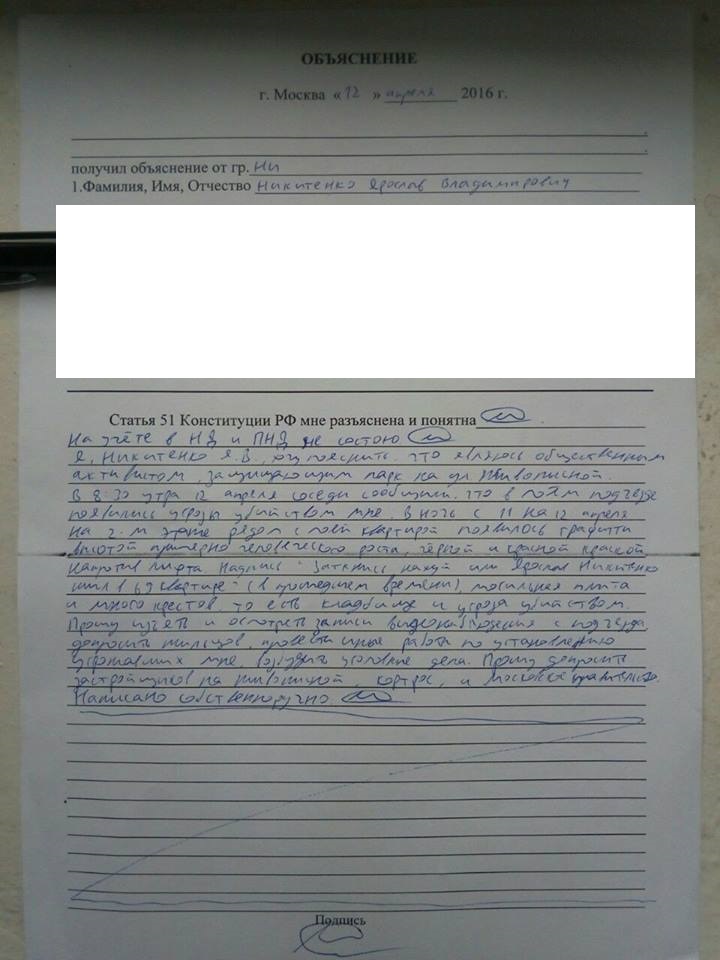 ОБЪЯСНЕНИЕ
г. Москва «12» апреля 2016 г.
получил объяснение от гр. Ни
1.Фамилия, Имя, Отчество Никитенко Ярослав Владимирович
Статья 51 Конституции РФ мне разъяснена и понятна
На учёте в НД и ПНД не состою
Я, Никитенко Я.В., могу пояснить, что являюсь общественным
активистом, защищающим парк на ул Живописной.
В 8:30 утра 12 апреля соседи сообщили, что в моём подъезде
появились угрозы убийством мне. В ночь с 11 на 12 апреля
на 2-м этаже рядом с моей квартирой появилось граффити
высотой примерно человеческого роста, чёрной и красной краской
напротив лифта. Надпись "Заткнись нахуй или Ярослав Никитенко
жил в 69 квартире" (в прошедшем времени), могильная плита
и много крестов, то есть кладбище и угроза убийством.
Прошу изъять и осмотреть записи видеонаблюдения с подъезда,
допросить жильцов, провести иные работы по установлению
угрожавших мне, возбудить уголовное дело. Прошу допросить
застройщиков на Живописной, Кортрос, и Московское правительство.
Написано собственноручно.
Подпись